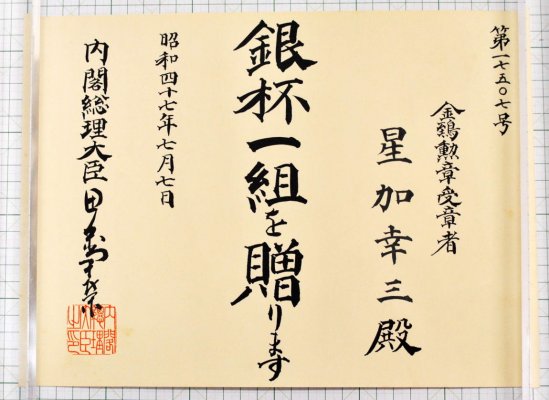 第一七五〇七号
金鵄勲章受章者
星加幸三殿
銀杯一組を贈ります
昭和四十七年七月七日
内閣総理大臣田中角栄
内閣総理大臣之印